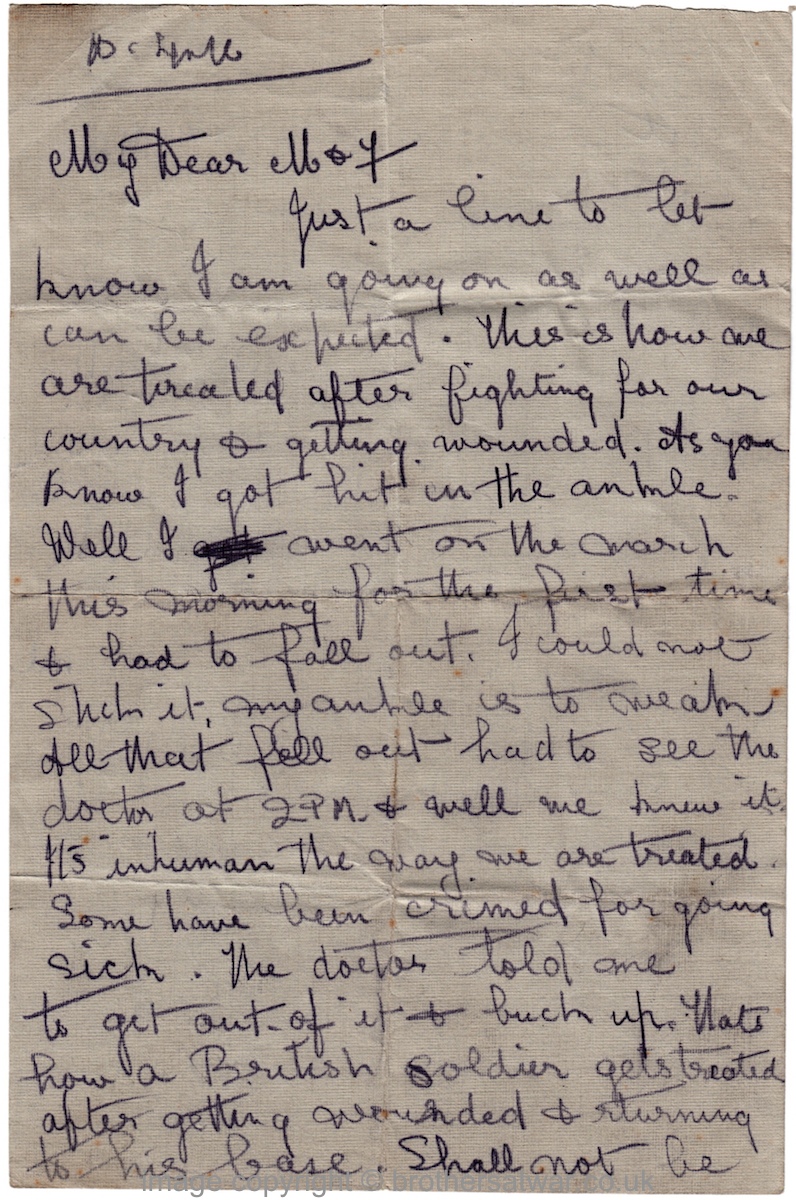 My Dear M & F
Just a line to let
know I am going on as well as
can be expected. This is how we
are treated after fighting for our
country & getting wounded. As you
know I got hit in the ankle.
Well I went on the march
this morning for the first time
& had to fall out. I could not
stick it, my ankle is to weak
All that fell out had to see the
doctor at 2PM. & well we knew it.
Its inhuman the way we are treated.
Some have been crimed for going
sick. The doctor told me
to get out of it & buck up. Thats
how a British soldier gets treated
after getting wounded & rturning
to his base. Shall not be
image copyright © brothersatwar.co.uk